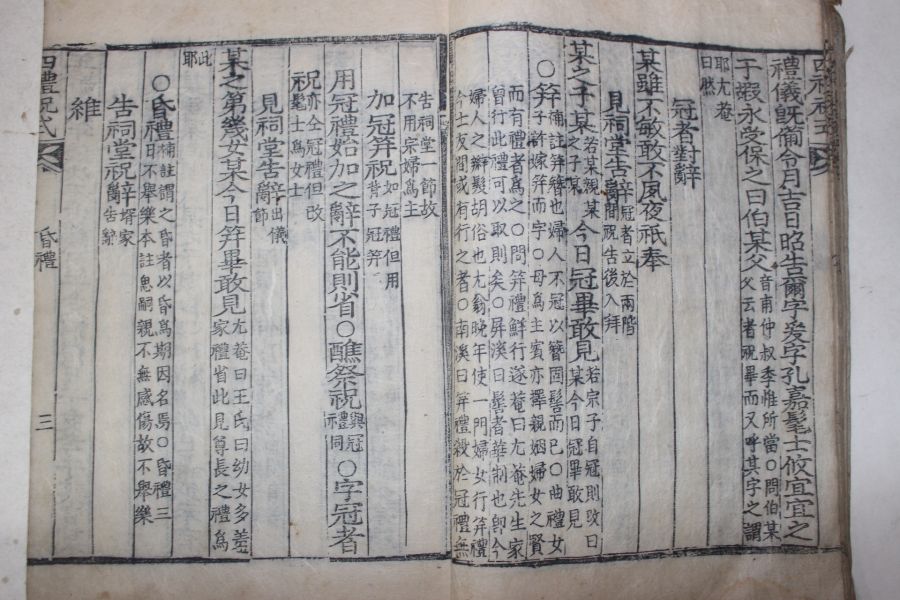 禮儀旣備今月吉日昭告爾字爰字孔嘉髦士攸宜宜之
于嘏永受保之曰伯某父
音甫仲叔季惟所當○問伯某
父云者祝畢而又呼其字之謂
耶尤菴
曰然
冠者對辭
某雖不敏敢不夙夜祇奉
見祠堂告辭
冠者立於兩階
間祝告後入拜
某之子某
若某親某
之子某
今日冠畢敢見
若宗子自冠則改曰
某今日冠畢敢見
○笄
備註笄簪也婦人不冠以簪固髻而已○曲禮女
子許嫁笄而字○母爲主賓亦擇親姻婦女之賢
而有禮者爲之○問笄禮鮮行遂菴曰尤菴先生家
曾行此禮可以取則矣○屏溪曰髻者華制也卽今
婦人之辮髮胡俗也尤翁晚年使一門婦女行笄禮
今士友間或有行之者○南溪曰笄禮殺於冠禮無
告祠堂一節故
不用宗婦爲主
加冠笄祝
如冠禮但用
背子冠笄
用冠禮始加之辭不能則省○醮祭祝
與冠
禮同
○字冠者
祝
亦仝冠禮但改
髦士爲女士
見祠堂告辭
出儀
節
某之第幾女某今日笄畢敢見
尤菴曰王氏曰幼女多差
家禮省此見尊長之禮爲
此
耶
○昏禮
備註謂之昏者以昏爲期因名焉○昏禮三
日不舉樂本註思嗣親不無感傷故不舉樂
告祠堂祝
壻家
告辭
維
四禮祝式
昏禮
三